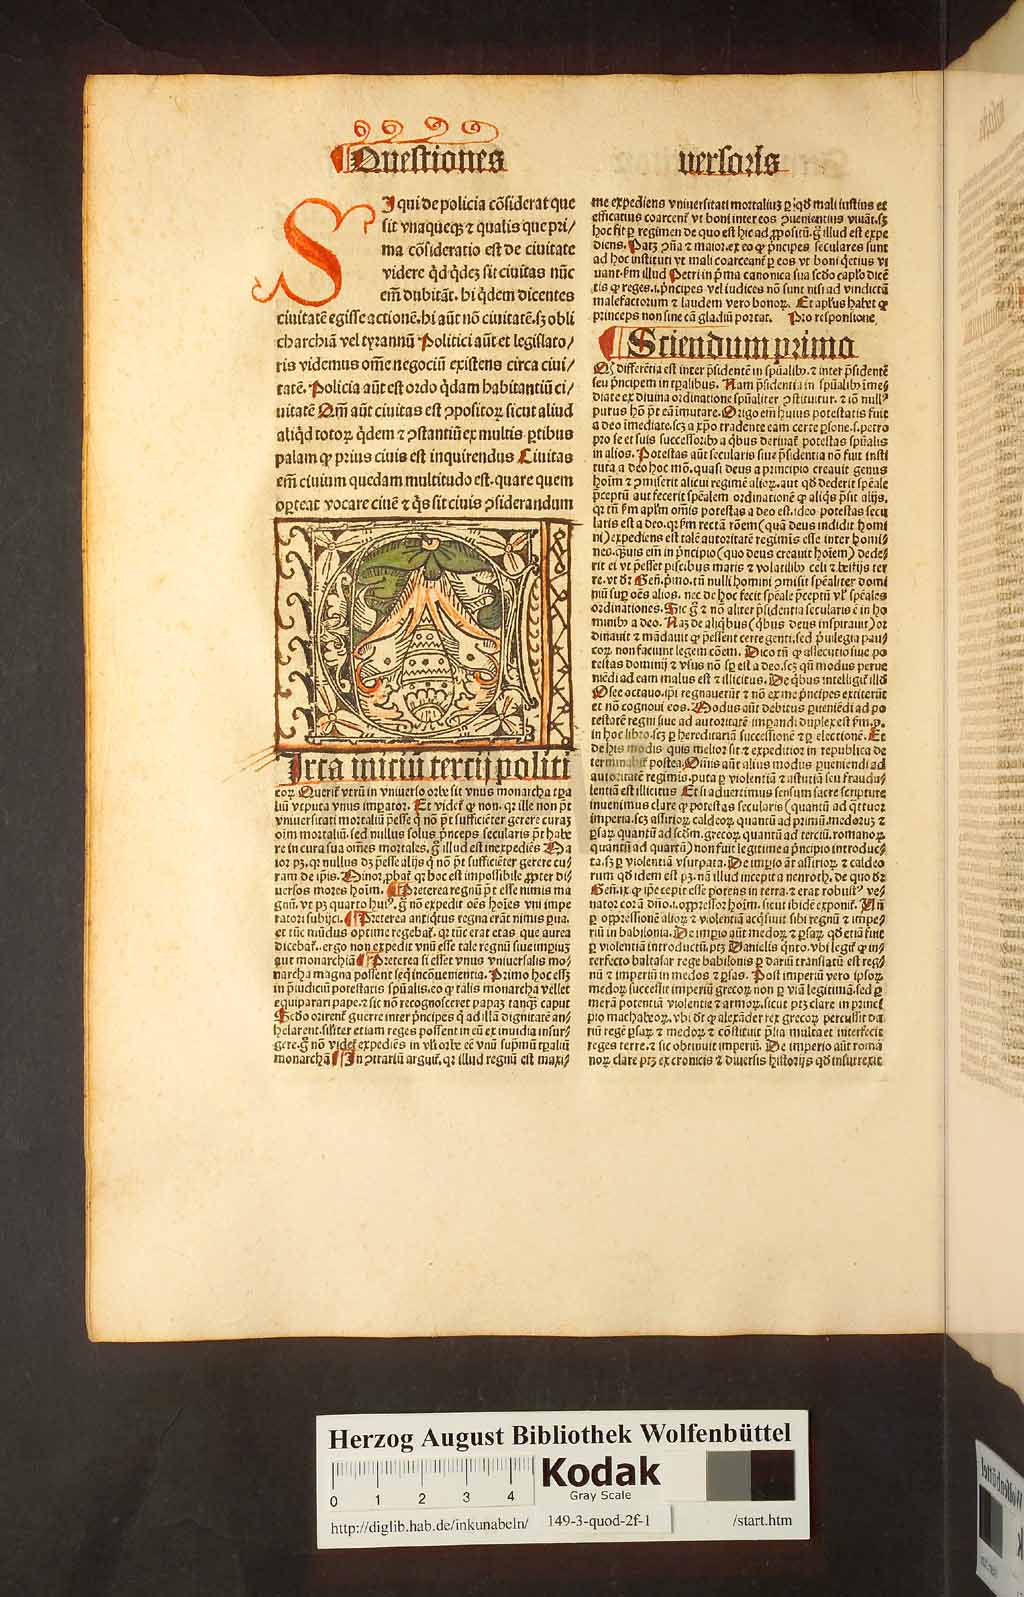 Questiones versoris
SI qui de policia cõsiderat que
sit vnaqueqꝫ ⁊ qualis que pri/
ma cõsideratio est de ciuitate
videre qd̃ qdeꝫ sit ciuitas nũc
em̃ dubitãt. hi qdem dicentes
ciuitatẽ egisse actionẽ. hi aũt nõ ciuitatẽ. sꝫ obli
charchiã vel tyrannũ Politici aũt et legislato/
ris videmus oem̃ negociũ existens circa ciui/
tatẽ. Policia aũt est ordo qdam habitantiũ ci/
uitatẽ Qm̃ aũt ciuitas est ꝯpositoꝝ sicut aliud
aliqd totoꝝ qdem ⁊ ꝯstantiũ ex multis ꝑtibus
palam ꝙ prius ciuis est inquirendus Ciuitas
em̃ ciuium quedam multitudo est. quare quem
oꝑteat vocare ciuẽ ⁊ qs sit ciuis ꝯsiderandum
CIrca iniciũ tercij politi
coꝝ Querit̃ vtrũ in vniuerso orbe sit vnus monarcha tꝑa
liũ vtputa vnus imꝑator. Et videt̃ ꝙ non. qꝛ ille non pt̃
vniuersitati mortaliũ p̃esse q̃ nõ pt̃ sufficiẽter gerere curaꝫ
oim̃ mortaliũ. sed nullus solus p̃nceps secularis pt̃ habe
re in cura sua om̃es mortales. g̃ illud est inexpediẽs Ma
ior pꝫ. qꝛ nullus dꝫ p̃esse alijs q̃ nõ pt̃ sufficiẽter gerere cu/
ram de ip̃is. Minor ꝓbat̃ qꝛ hoc est impossibile ꝓpter di/
uersos mores hoĩm. Preterea regnũ pt̃ esse nimis ma
gnũ. vt pꝫ quarto huiꝰ. g̃ nõ expedit oẽs hoĩes vni impe
ratori subijci. Preterea antiqtus regna erãt nimis ꝑua.
et tũc mũdus optime regebat̃. qꝛ tũc erat etas que aurea
dicebat̃. ergo non expedit vnũ esse tale regnũ siue impiuꝫ
aut monarchiã Preterea si esset vnus vniuersalis mo/
narcha magna possent seq̃ incõuenientia. Primo hoc essꝫ
in p̃iudiciũ potestatis spũalis. eo ꝙ talis monarcha vellet
equiparari pape. ⁊ sic nõ recognosceret papaꝫ tanqꝫ caput
Scdo orirent̃ guerre inter p̃ncipes q̃ ad illã dignitatẽ an/
helarent. silr̃iter etiam reges possent in eũ ex inuidia insur/
gere. g̃ nõ videt̃ expediẽs in vlt̃o orbe eẽ vnũ sup̃mũ tꝑaliũ
monarchã In ꝯtrariũ arguit̃. qꝛ illud regnũ est maxi/
me expediens vniuersitati mortaliuꝫ ꝑ qd̃ mali iustius et
efficatius coarcent̃ vt boni inter eos ꝯuenientius viuãt. sꝫ
hoc fit ꝑ regimen de quo est hic ad ꝓpositũ. g̃ illud est expe
diens. Patꝫ ꝯña ⁊ maior. ex eo ꝙ p̃ncipes seculares sunt
ad hoc instituti vt mali coarceant̃ ꝑ eos vt boni q̃etius vi
uant. km̃ illud Petri in p̃ma canonica sua scdo caplo dicẽ
tis ꝙ reges. i. p̃ncipes vel iudices nõ sunt nisi ad vindictã
malefactorum ⁊ laudem vero bonoꝝ. Et apl̃us habet ꝙ
princeps non sine cã gladiũ portat. Pro responsione
Sciendum primo
Qꝫ differẽtia est inter p̃sidentẽ in spũalibꝰ. ⁊ inter p̃sidentẽ
seu p̃ncipem in tꝑalibus. Nam p̃sidentia in spũalibꝰ ime/
diate ex diuina ordinatione spũaliter ꝯstituitur. ⁊ iõ nullꝰ
purus hõ pt̃ eã imutare. Origo em̃ huius potestatis fuit
a deo ĩmediate. scꝫ a xp̃o tradente eam certe ꝑsone. s. petro
pro se et suis successoribꝰ a qbus deriuat̃ potestas spũalis
in alios. Potestas aũt secularis siue p̃sidentia nõ fuit insti
tuta a deo hoc mõ. quasi deus a principio creauit genus
hoĩm ⁊ ꝯmiserit alicui regimẽ alioꝝ. aut qd̃ dederit sp̃eale
p̃ceptũ aut fecerit sp̃ealem ordinationẽ ꝙ aliqs p̃sit alijs.
qꝛ tñ km̃ apl̃m om̃is potestas a deo est. ideo potestas secu
laris est a deo. qꝛ km̃ rectã rõem (quã deus indidit homi
ni) expediens est talẽ autoritatẽ regiminis esse inter homi/
nes. quis em̃ in p̃ncipio (quo deus creauit hoĩem) dede/
rit ei vt p̃esset piscibus maris ⁊ volatilibꝰ celi ⁊ bestijs ter
re. vt dr̃ Geñ. p̃mo. tñ nulli homini ꝯmisit sp̃ealiter domi
niũ suꝑ oẽs alios. nec de hoc fecit sp̃eale p̃ceptũ vl̃ sp̃eales
ordinationes. Sic g̃ ⁊ nõ aliter p̃sidentia secularis ẽ in ho
minibꝰ a deo. Naꝫ de aliqbus (qbus deus inspirauit) or
dinauit ⁊ mãdauit ꝙ p̃essent certe genti. sed p̃uilegia pau/
coꝝ non faciunt legem cõem. Dico tñ ꝙ assecutio siue po
testas dominij ⁊ vsus nõ sꝑ est a deo. scꝫ qñ modus perue
niẽdi ad eam malus est ⁊ illicitus. De qbus intelligit̃ illd̃
Osee octauo. ip̃i regnauerũt ⁊ nõ ex me p̃ncipes extiterũt
et nõ cognoui eos. Modus aũt debitus ꝑueniẽdi ad po
testatẽ regni siue ad autoritatẽ imꝑandi duplex est km̃ p.
in hoc libro. scꝫ ꝑ hereditariã successionẽ ⁊ ꝑ electionẽ. Et
de his modis quis melior sit ⁊ expeditior in republica de
terminabit̃ postea. Om̃is aũt alius modus ꝑueniendi ad
autoritatẽ regiminis. puta ꝑ violentiã ⁊ astutiã seu fraudu/
lentiã est illicitus Et si aduertimus sensum sacre scripture
inuenimus clare ꝙ potestas secularis (quantũ ad q̃ttuor
imperia. scꝫ assirioꝝ caldeoꝝ quantũ ad primũ. medoruꝫ ⁊
ꝑsaꝝ quantũ ad scdm̃. grecoꝝ quantũ ad terciũ. romanoꝝ
quantũ ad quartũ) non fuit legitime a p̃ncipio introduc/
ta. sꝫ ꝑ violentiã vsurpata. De imꝑio aũt assirioꝝ ⁊ caldeo
rum qd̃ idem est pꝫ. nã illud incepit a nenroth. de quo dr̃
Geñ. ix ꝙ ip̃e cepit esse potens in terra. ⁊ erat robustꝰ ve/
nator corã dño. i. oppressor hoĩm. sicut ibidẽ exponit̃. Uñ
ꝑ oppressionẽ alioꝝ ⁊ violentiã acqsiuit sibi regnũ ⁊ impe/
riũ in babilonia. De impio aũt medoꝝ ⁊ ꝑsaꝝ. qd̃ etiã fuit
ꝑ violentiã introductũ. ptꝫ Danielis qnto. vbi legit̃ ꝙ in/
terfecto baltasar rege babilonis ꝑ dariũ translatũ est reg/
nũ ⁊ imperiũ in medos ⁊ ꝑsas. Post imperiũ vero ipsoꝝ
medoꝝ successit imperiũ grecoꝝ non ꝑ viã legitimã. sed ꝑ
merã potentiã violentie ⁊ armoꝝ. sicut ptꝫ clare in princi/
pio machabeoꝝ. vbi dr̃ ꝙ alexãder rex grecoꝝ percussit da
riũ regẽ ꝑsaꝝ ⁊ medoꝝ ⁊ cõstituit p̃lia multa et interfecit
reges terre. ⁊ sic obtinuit imperiũ. De imperio aũt roma
noꝝ clare ptꝫ ex cronicis ⁊ diuersis historijs qd̃ insurrexit
Herzog August Bibliothek Wolfenbüttel
0 1 2 3 4
Kodak
Gray Scale
http://diglib.hab.de/inkunabeln/ 149-3-quod-2f-1 /start.htm